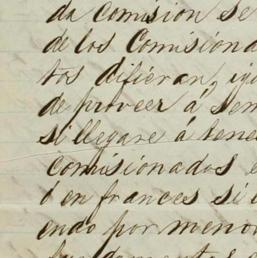 da comision se
de los Comisiona
tos difieran, igu
de proveer á sem
si llegare á tene
comisionados e
ó en frances si
endo por menor
fundamentos